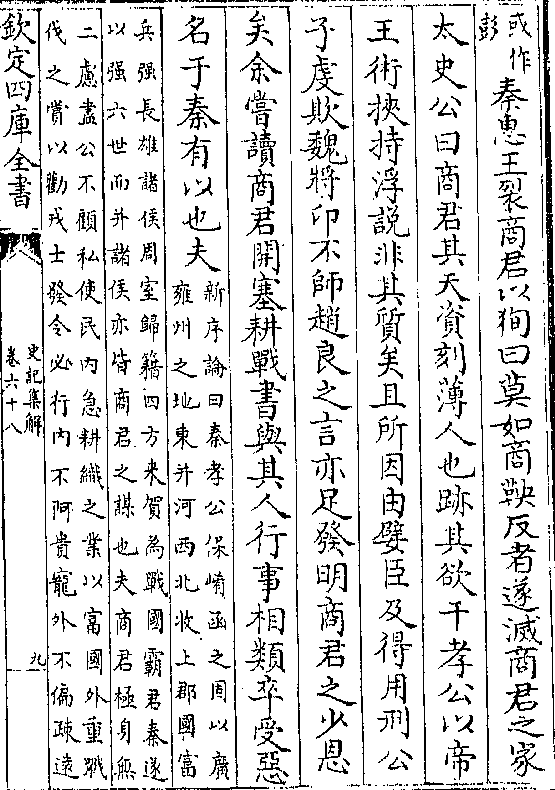 或作
彭
秦惠王裂商君以狥曰莫如商鞅反者遂滅商君之家
太史公曰商君其天資刻薄人也跡其欲干孝公以帝
王術挾持浮說非其質矣且所因由嬖臣及得用刑公
子虔欺魏將卬不師趙良之言亦足發明商君之少恩
矣余嘗讀商君開塞耕戰書與其人行事相類卒受惡
名于秦有以也夫
新序論曰秦孝公保崤函之固以廣
雍州之地東并河西北收上郡國富
兵强長雄諸侯周室歸籍四方來賀為戰國霸君秦遂
以强六世而并諸侯亦皆商君之謀也夫商君極身無
二慮盡公不顧私使民内急耕織之業以富國外重戰
伐之賞以勸戎士發令必行内不阿貴寵外不偏疎逺
欽定四庫全書
史記集解
卷六十八
九